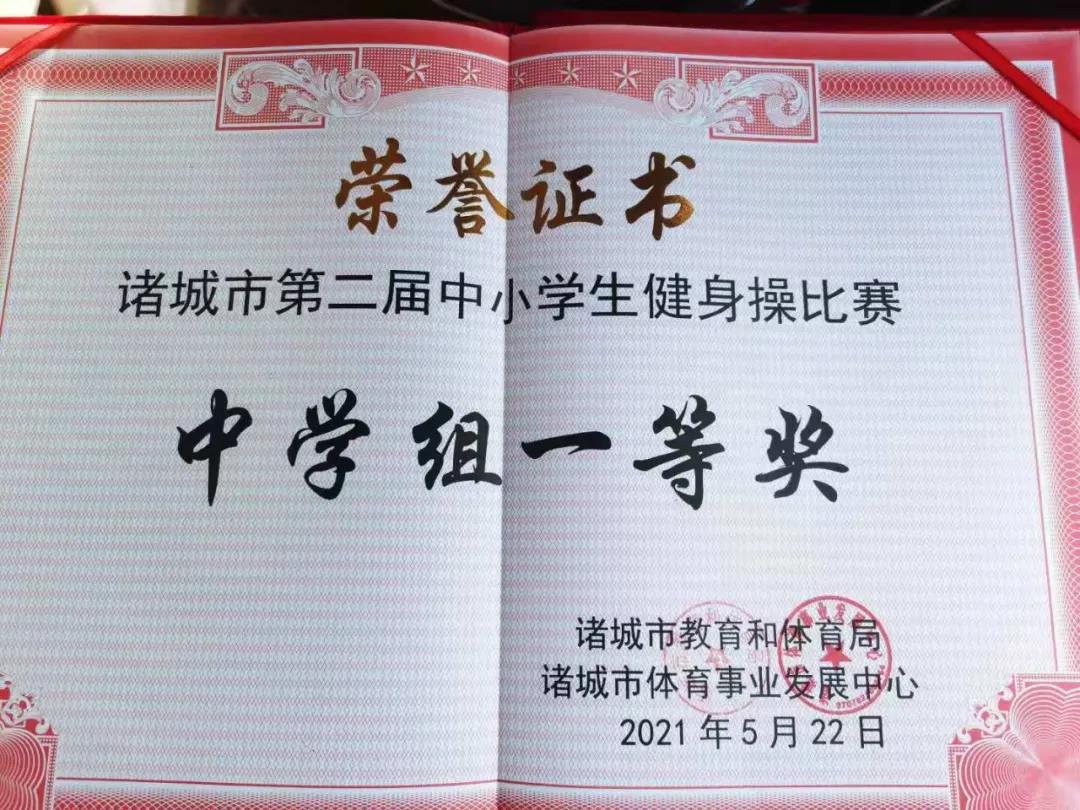 荣誉证书
诸城市第二届中小学生健身操比赛
中学组一等奖
诸城市教育和体育局
诸城市体育事业发展中心
2021年5月22日